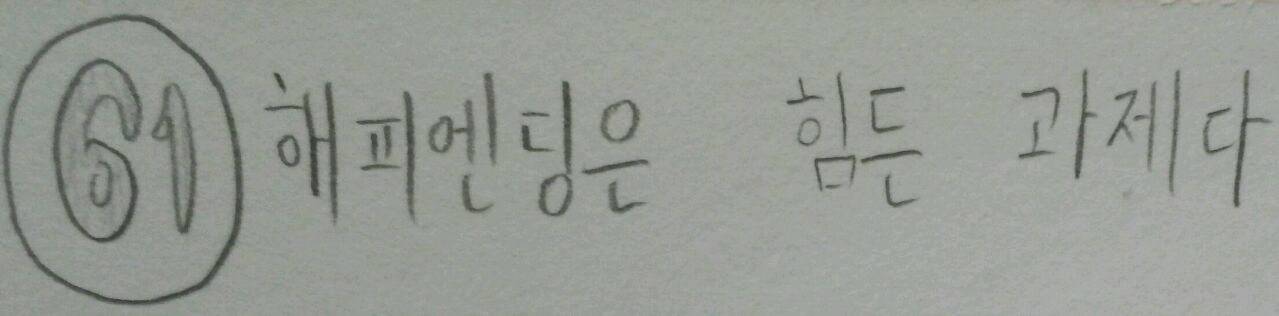 61 해피엔딩은 힘든 과제다